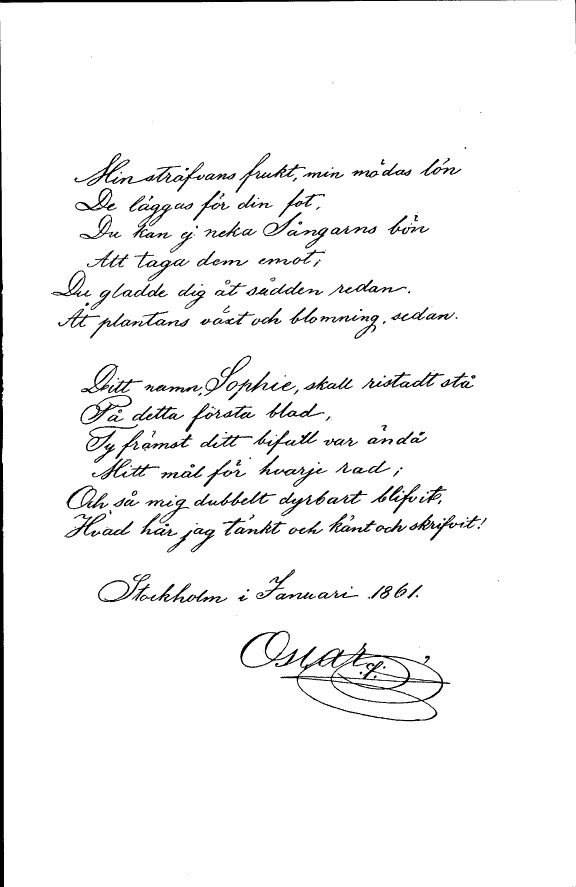 Min sträfvans frukt, min mödas lön
De läggas för din fot,
Du kan ej neka Sångarns bön
Att taga dem emot;
Du gladde dig åt sådden redan.
Åt plantans växt och blomning, sedan.
Ditt namn, Sophie, skall ristadt stå
På detta första blad,
Ty främst ditt bifall var ändå
Mitt mål för hvarje rad;
Och så mig dubbelt dyrbart blifvit,
Hvad här jag tänkt och känt och skrifvit!
Stockholm i Januari 1861.
Oscar